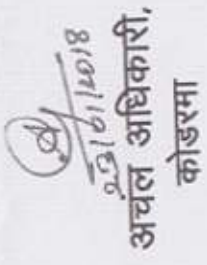 23/01/2018
अंचल अधिकारी,
कोडरमा